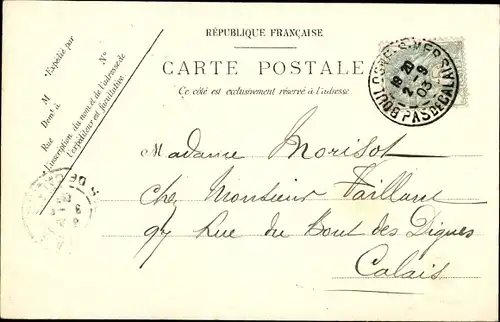 RÉPUBLIQUE FRANÇAISE
CARTE POSTALE
Ce côté est exclusivement réservé à l'adresse
Expédié par
M
Demt à
Rue
N°
L'inscription du nom et de l'adresse de
l'expéditeur est facultative
BOULOGNE-S-MER
PAS DE CALAIS
18 20
2-9
03
Madame Morisot
chez Monsieur Vaillant
97 Rue du Bout des Digues
Calais